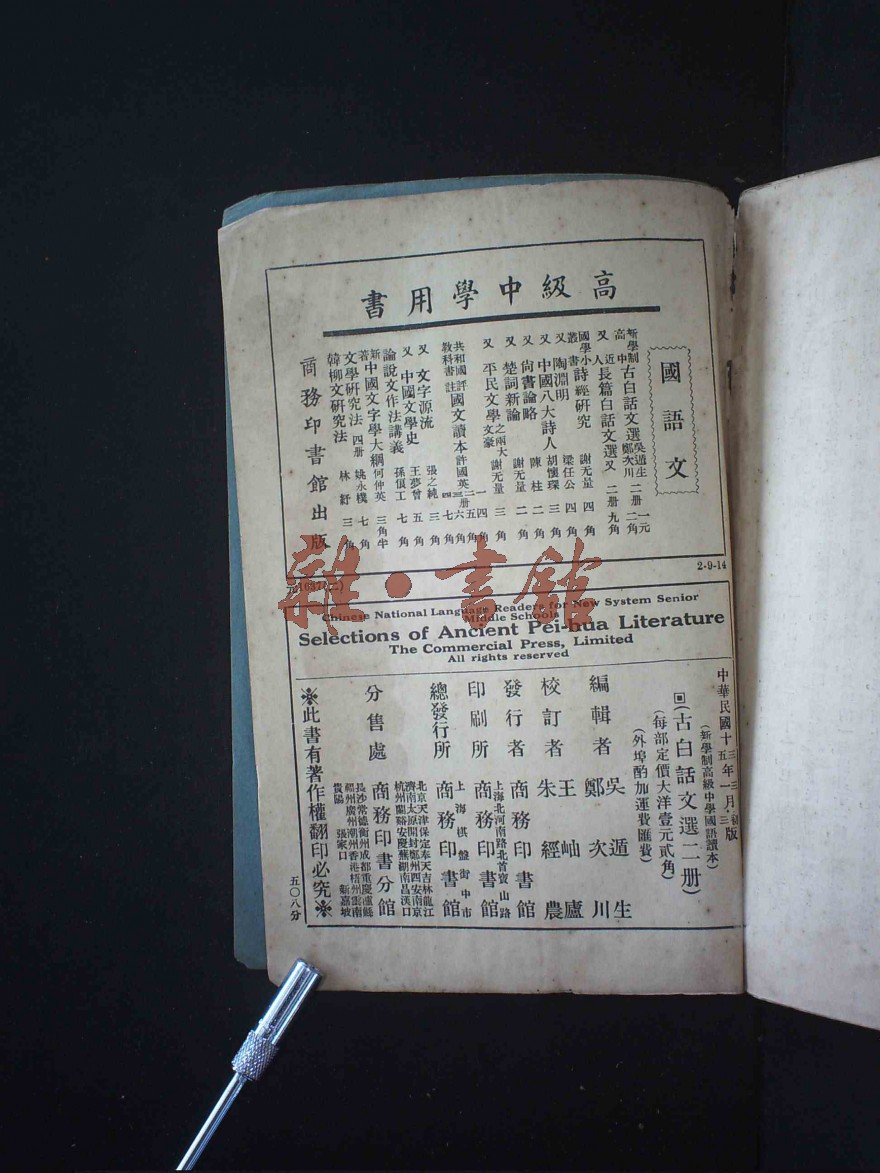 高級中學用書
國語文
新學制高中古白話文選 吳遁生 鄭次川 二册 一元二角
又 近人長篇白話文選 又 二册 九角
國學小叢書 詩經研究 謝无量 四角
又 陶淵明 梁任公 四角
又 中國八大詩人 胡懷琛 三角
又 尙書論略 陳柱 二角
又 楚詞新論 謝无量 二角
又 平民文學之兩大文豪 謝无量 三角
共和國教科書 國文讀本評註 許國英
又 文字源流 張之純 三角
又 中國文學史 王夢曾 五角
論說文作法講義 孫俍工 七角
新著中國文字學大綱 何仲英 三角半
文學研究法 四册 姚永樸 七角
韓柳文研究法 林紓 三角
商務印書館出版
2-9-14
雜·書館
Chinese National Language Readers for New System Senior
Middle Schools
Selections of Ancient Pei-hua Literature
The Commercial Press, Limited
All rights reserved
中華民國十三年三月初版
十五年一月三版
(新學制高級中學國語讀本)
(古白話文選二册)
(每部定價大洋壹元貳角)
(外埠酌加運費匯費)
編輯者 吳遁生 鄭次川
校訂者 王岫廬 朱經農
發行者 商務印書館
上海北河南路北首寶山路
印刷所 商務印書館
上海棋盤街中市
總發行所 商務印書館
北京天津保定奉天吉林龍江
濟南太原開封鄭州西安南京
杭州蘭谿安慶蕪湖南昌漢口
分售處 商務印書分館
長沙常德衡州成都重慶瀘縣
福州廣州潮州香港梧州雲南
貴陽 張家口 新嘉坡
※此書有著作權翻印必究※
五〇八分